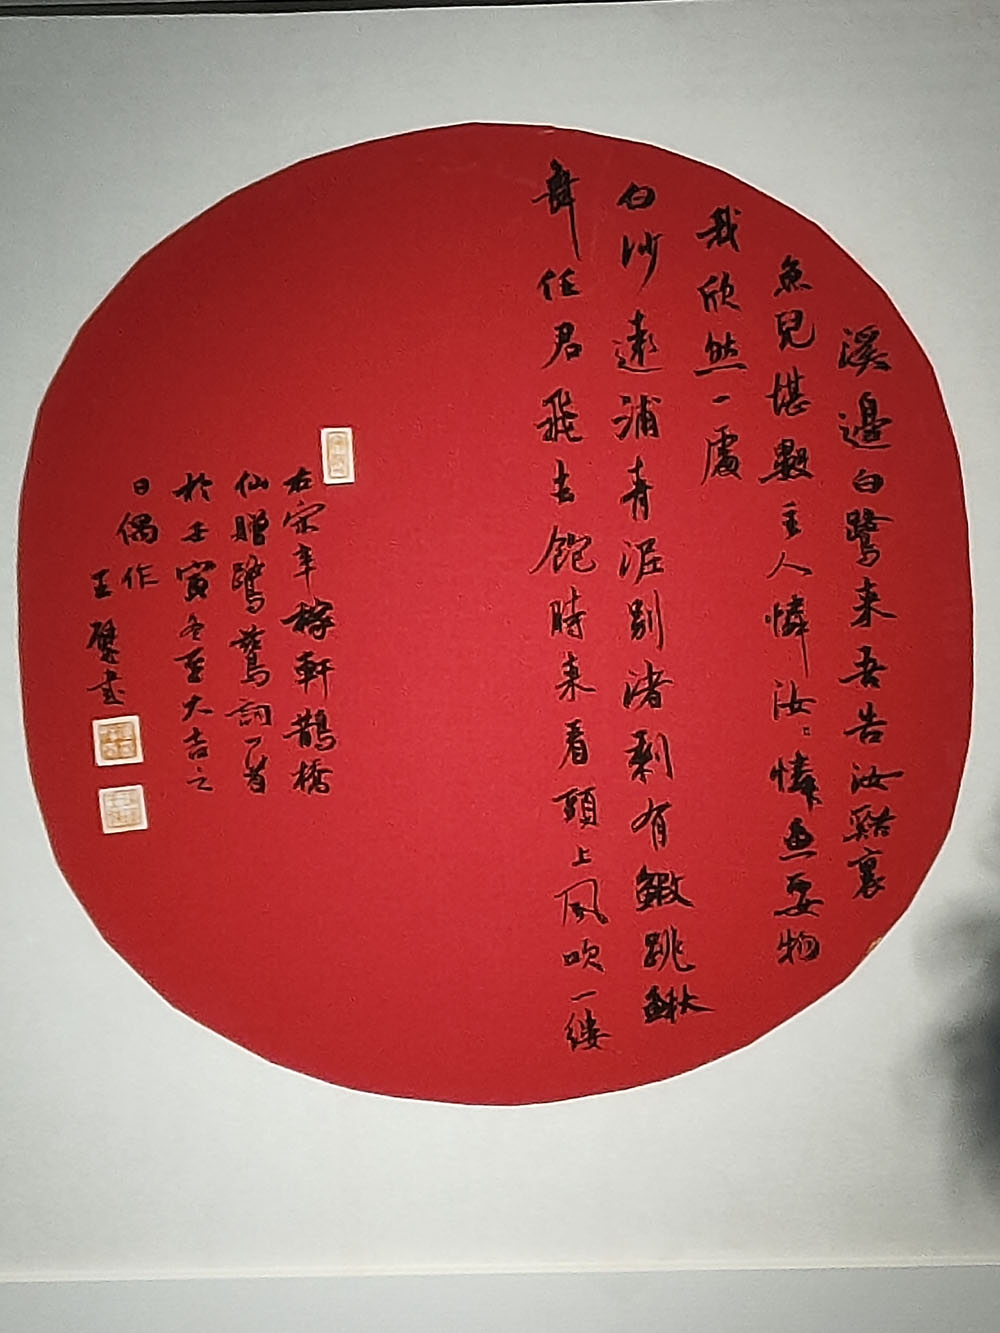 溪邊白鷺来吾告汝谿裏
魚兒堪數主人憐汝〻憐魚要物
我欣然一處
白沙遠浦青泥別渚剩有鰕跳鰍
舞任君飛去飽時来看頭上風吹一縷
右宋辛稼軒鵲橋
仙贈鷺鷥詞一首
於壬寅冬至大吉之
日偶作
王 書